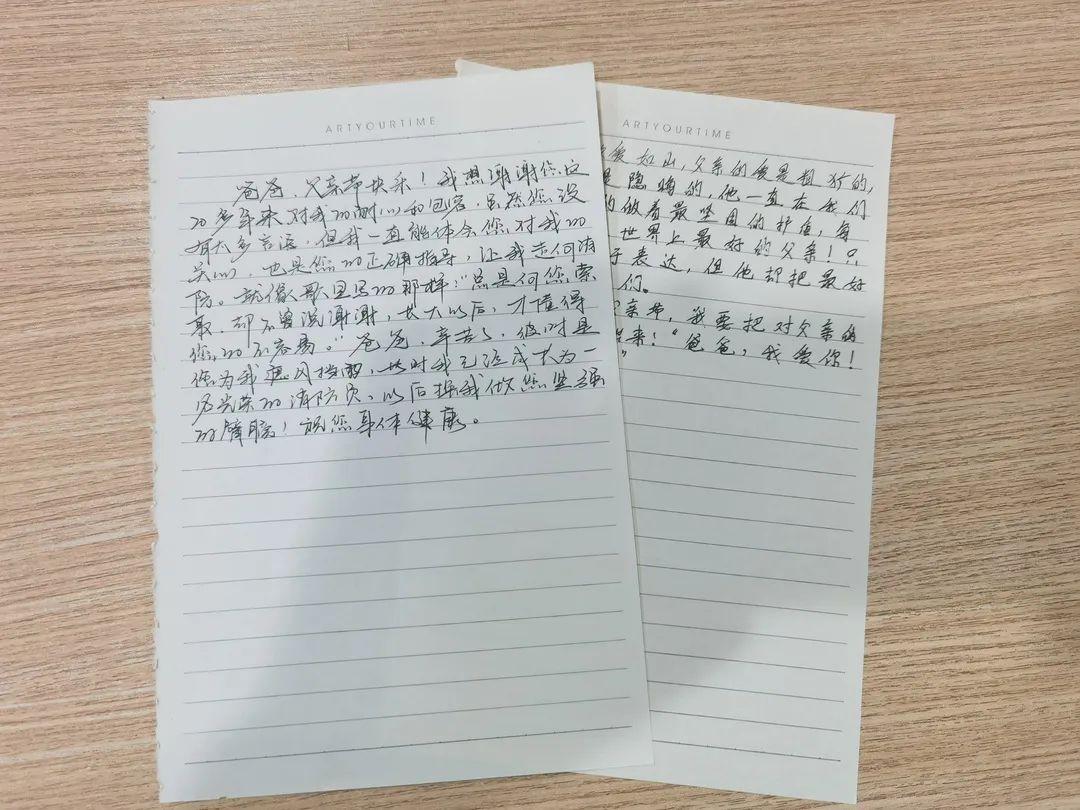 ARTYOURTIME
爸爸，父亲节快乐！我想谢谢您这
20多年来对我的耐心和包容，虽然您没
有太多言语，但我一直能体会您对我的
关心，也是您的正确指导，让我走向消
防。就像歌里写的那样："总是向您索
取，却不曾说谢谢，长大以后，才懂得
您的不容易。"爸爸，辛苦了，彼时是
您为我遮风挡雨，此时我已经成长为一
名光荣的消防员，以后换我做您坚强
的臂膀！祝您身体健康。
ARTYOURTIME
爱如山，父亲的爱是粗犷的，
是隐晦的，他一直在我们
的做着最坚固的护盾，每
世界上最好的父亲！
于表达，但他却把最好
们。
亲节，我要把对父亲的
来："爸爸，我爱你！
"